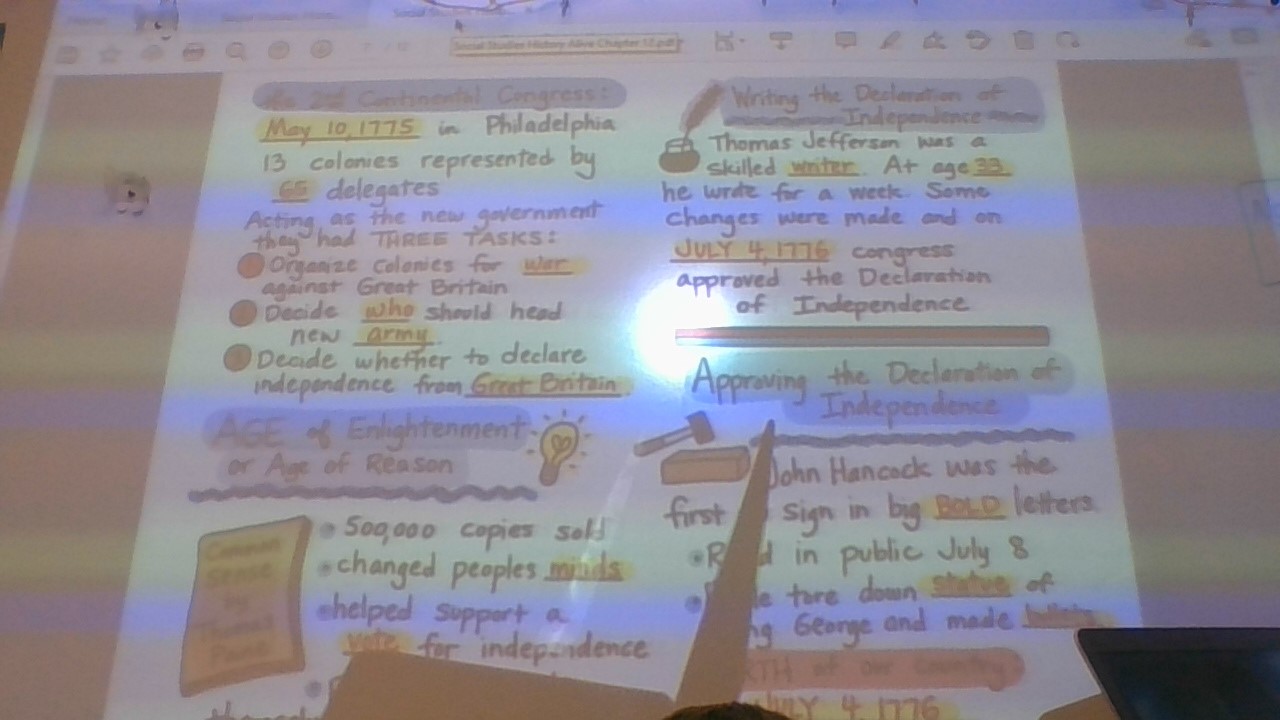 Social Studies History Alive Chapter 12.pdf
2nd Continental Congress:
May 10, 1775 in Philadelphia
13 colonies represented by
65 delegates
Acting as the new government
they had THREE TASKS:
Organize colonies for war
against Great Britain
Decide who should head
new army.
Decide whether to declare
independence from Great Britain.
AGE of Enlightenment
or Age of Reason
Common
Sense
by
Thomas
Paine
500,000 copies sold
changed peoples minds
helped support a
vote for independence
Writing the Declaration of
Independence
Thomas Jefferson was a
skilled writer. At age 33
he wrote for a week. Some
changes were made and on
JULY 4, 1776 congress
approved the Declaration
of Independence
Approving the Declaration of
Independence
John Hancock was the
first sign in big BOLD letters.
in public July 8
tore down statue of
George and made
of our Country
JULY 4, 1776